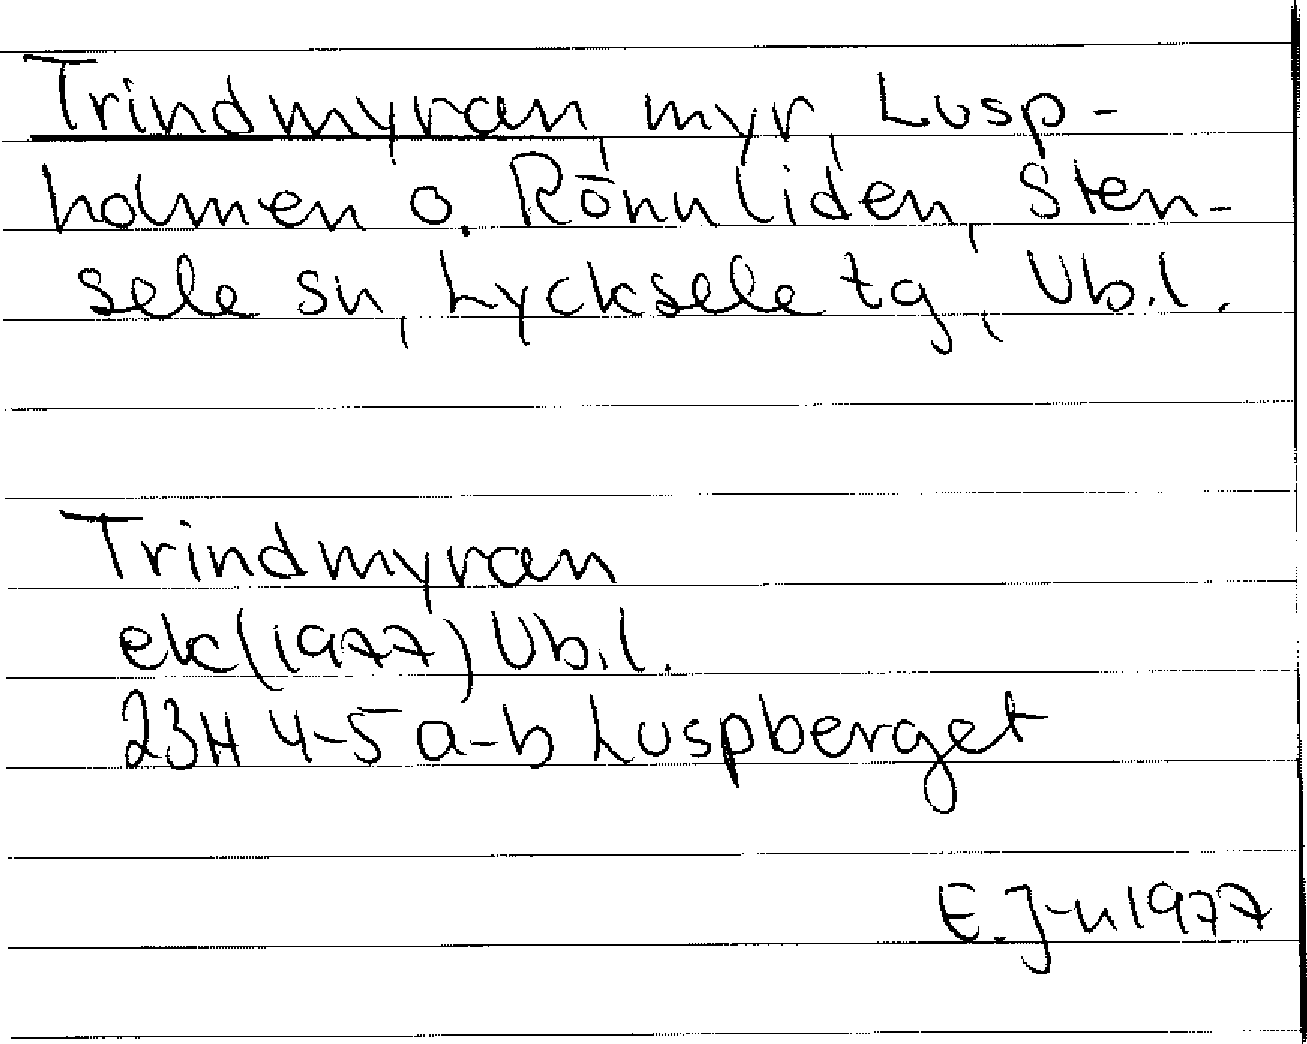 Trindmyran, myr, Lusp-
holmen o. Rönnliden, Sten-
sele sn, Lycksele tg, Vb.l.
Trindmyran
ek(1977) Vb.l.
23H 4-5 a-b Luspberget
E.J-n 1977